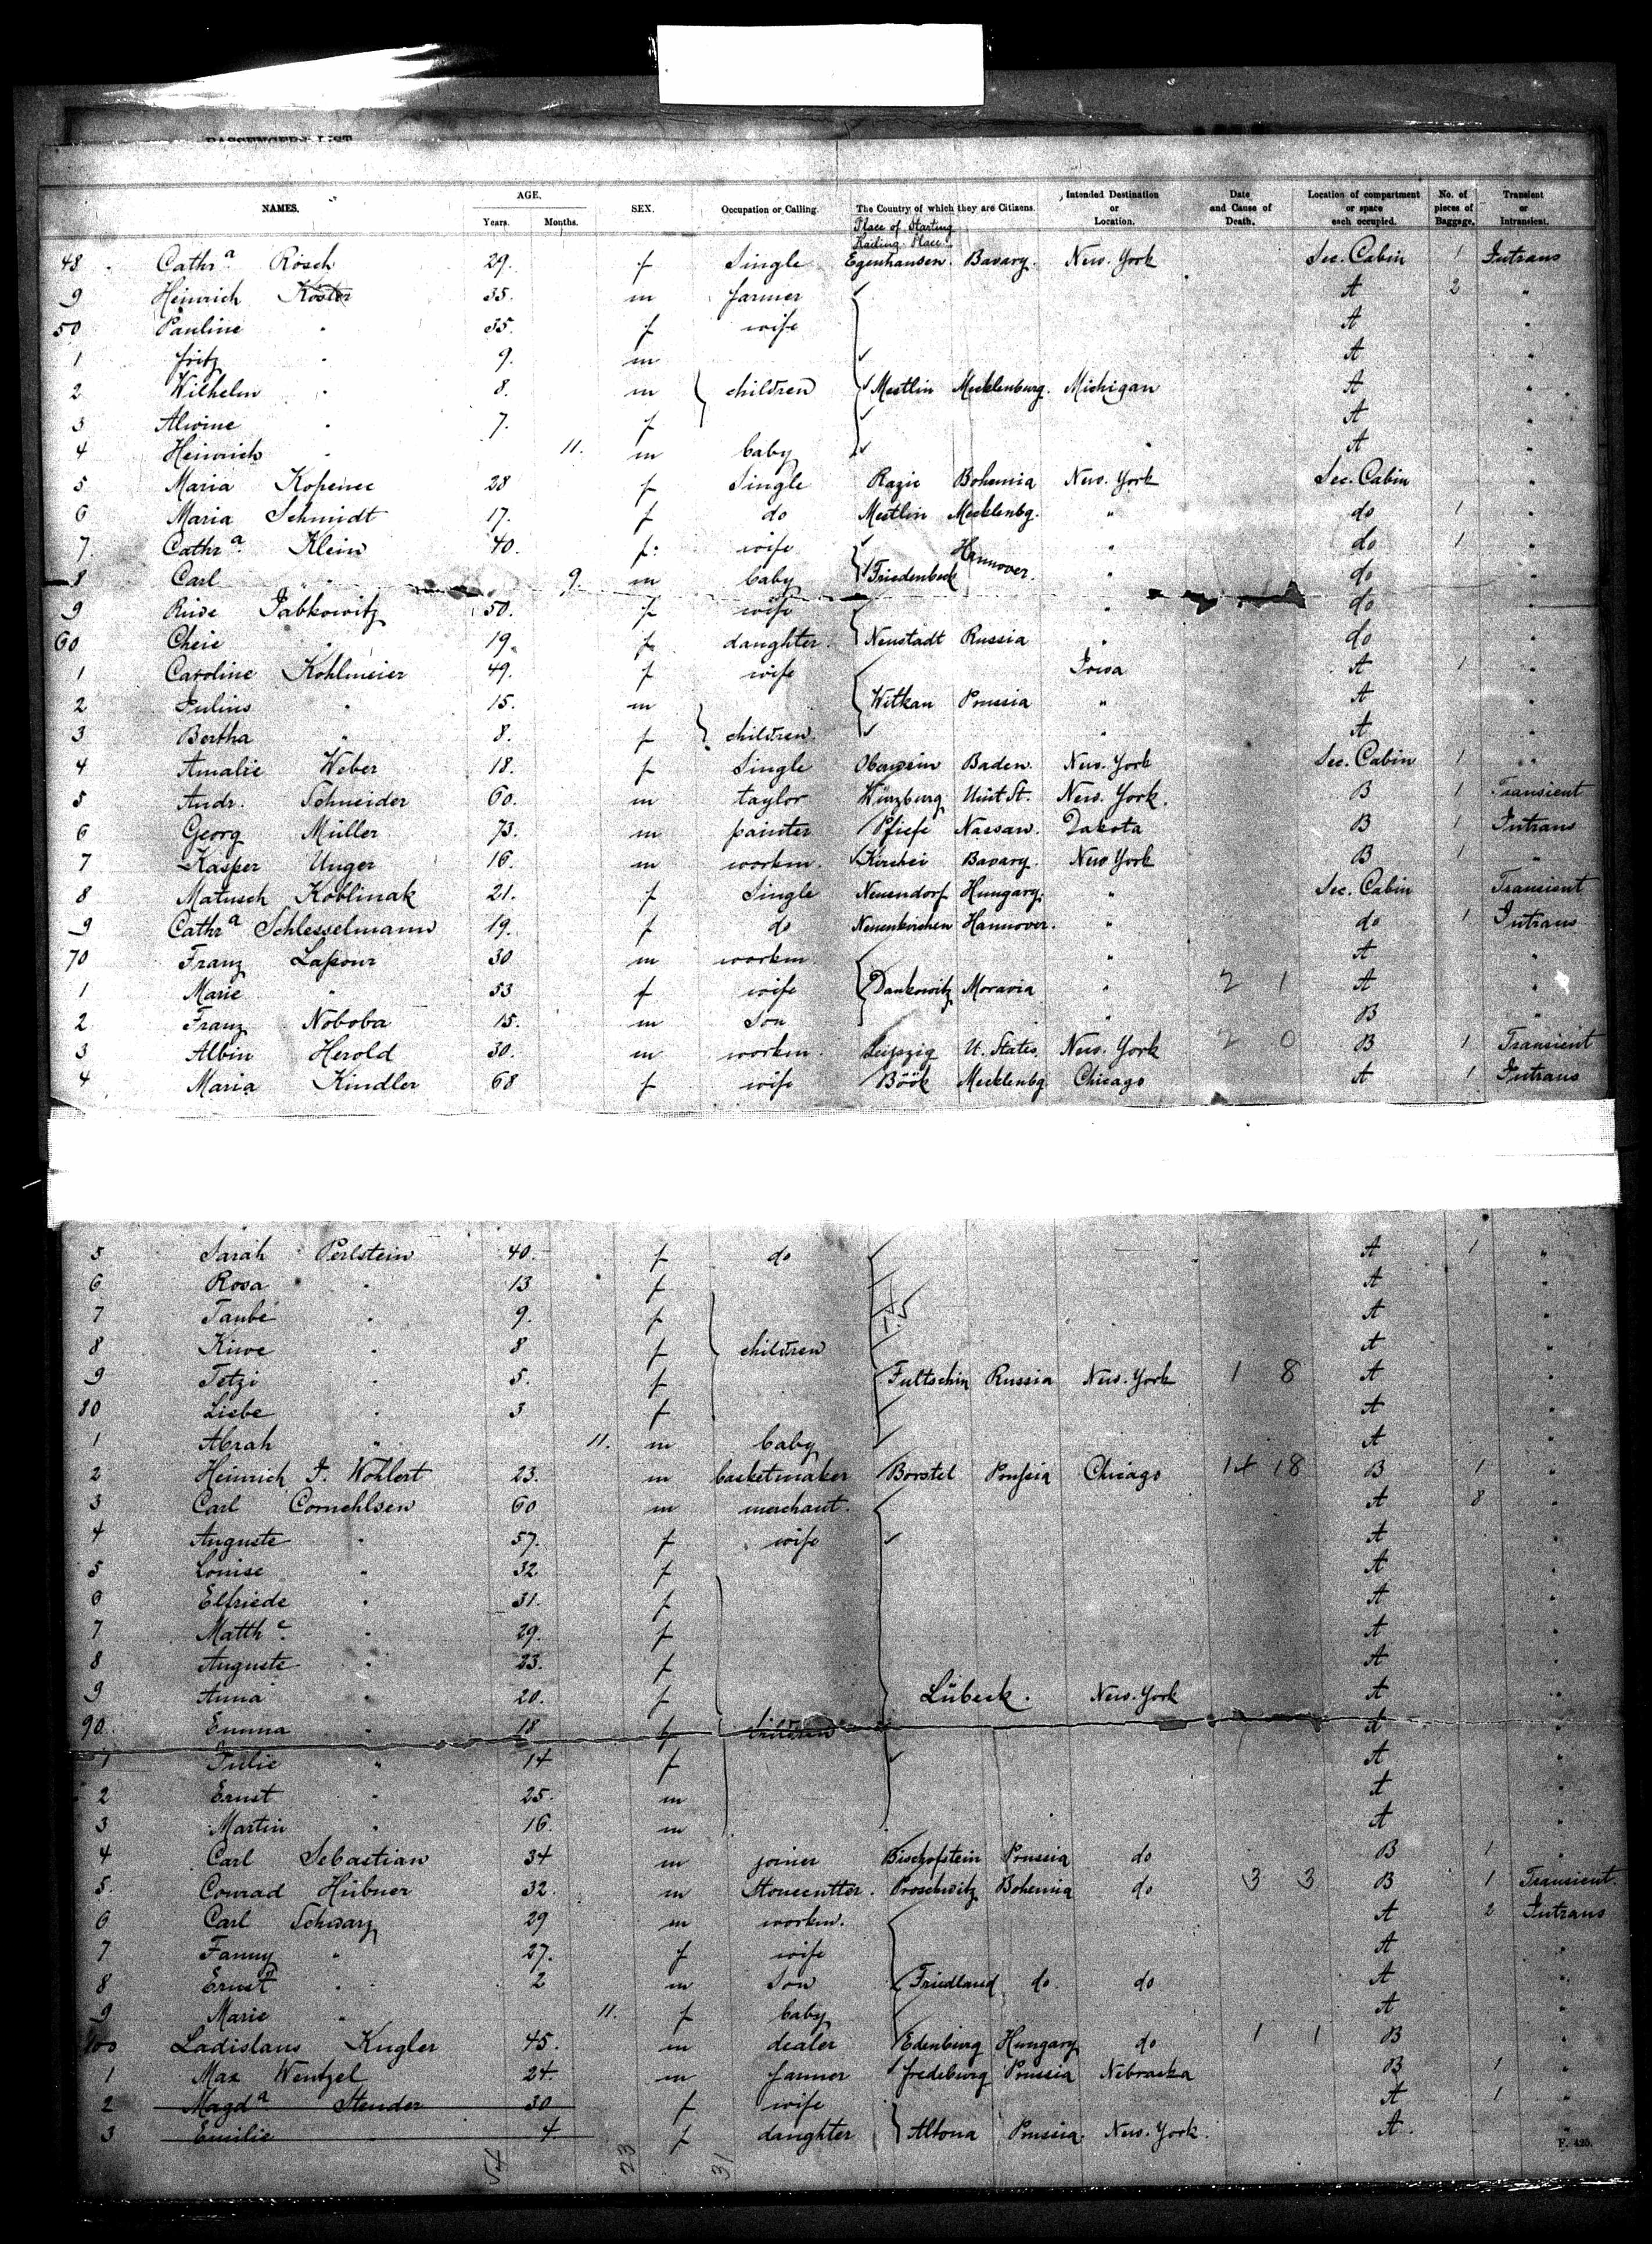 PASSENGERS LIST
NAMES. AGE. Years. Months. SEX. Occupation or Calling. The Country of which they are Citizens. Intended Destination or Location. Date and Cause of Death. Location of compartment or space each occupied. No. of pieces of Baggage. Transient or Intransient.
Place of Starting
Hailing Place
48 Cathra Rösch 29. f Single Egenhausen Bavary. New. York Sec. Cabin 1 Intrans
9 Heinrich Köster 35. m farmer A 2 "
50 Pauline " 35. f wife A "
1 Fritz " 9. m A "
2 Wilhelm " 8. m children Mestlin Mecklenburg. Michigan A "
3 Alwine " 7. f A "
4 Heinrich " 11. m baby " A "
5 Maria Kopenec 28 f Single Razic Bohemia New. York Sec. Cabin "
6 Maria Schmidt 17. f do Mestlin Mecklenbg. " do 1 "
7 Cathra Klein 40. f. wife " do 1 "
8 Carl " 9. m baby Friedenbeck Hannover. " do "
9 Riwe Jabkowitz 50. f wife " do "
60 Cheie " 19. f daughter. Neustadt Russia " do "
1 Caroline Kohlmeier 49. f wife Iowa A 1 "
2 Julius " 15. m Witkau Prussia " A "
3 Bertha " 8. f children " A "
4 Amalie Weber 18. f Single Baden New. York Sec. Cabin 1 "
5 Andr. Schneider 60. m taylor Würzburg Unit St. New. York. B 1 Transient
6 Georg Müller 73. m painter Pfiefe Nassau. Dakota B 1 Intrans
7 Kasper Unger 16. m workm. Bavary. New York B 1 "
8 Matusch Koblinak 21. f Single Neuendorf Hungary. " Sec. Cabin Transient
9 Cathra Schlesselmann 19. f do Neuenkirchen Hannover. " do 1 Intrans
70 Franz Lapour 30 m workm. " A "
1 Marie " 53 f wife Dankowitz Moravia " 2 1 A "
2 Franz Noboba 15. m Son " B "
3 Albin Herold 30. m workm. Leipzig U. States New. York 2 0 B 1 Transient
4 Maria Kindler 68 f wife Böök Mecklenbg Chicago A 1 Intrans
5 Sarah Perlstein 40. f do A 1 "
6 Rosa " 13 f A "
7 Taube " 9. f A "
8 Kiwe " 8 f children A "
9 Tetzi " 5. f Fultschin Russia New. York 1 8 A "
80 Liebe " 3 f A "
1 Abrah " 11. m baby A "
2 Heinrich J. Wohlert 23. m basketmaker Borstel Prussia Chicago 14 18 B 1 "
3 Carl Cornehlsen 60 m merchant. A 8 "
4 Auguste " 57. f wife A "
5 Louise " 32 f A "
6 Elfriede " 31. f A "
7 Matthe " 29. f A "
8 Auguste " 23. f A "
9 Anna " 20. f Lübeck. New. York A "
90. Emma " 18 f children A "
1 Julie " 14 f A "
2 Ernst " 25. m A "
3 Martin " 16. m A "
4 Carl Sebastian 34 m joiner Bischofstein Prussia do B 1 "
5. Conrad Hübner 32. m Stonecutter. Proschwitz Bohemia do 3 3 B 1 Transient.
6 Carl Schwarz 29 m workm. A 2 Intrans
7 Fanny " 27. f wife A "
8 Ernst " 2 m Son Friedland do. do A "
9 Marie " 11. f baby A "
100 Ladislaus Kugler 45. m dealer Edenburg Hungary do 1 1 B "
1 Max Wentzel 24. m farmer Fredeburg Prussia Nebraska B 1 "
2 Magda Stender 30 f wife A 1 "
3 Emilie 4. f daughter Altona Prussia. New. York. A. "
54 23 31
F. 425.